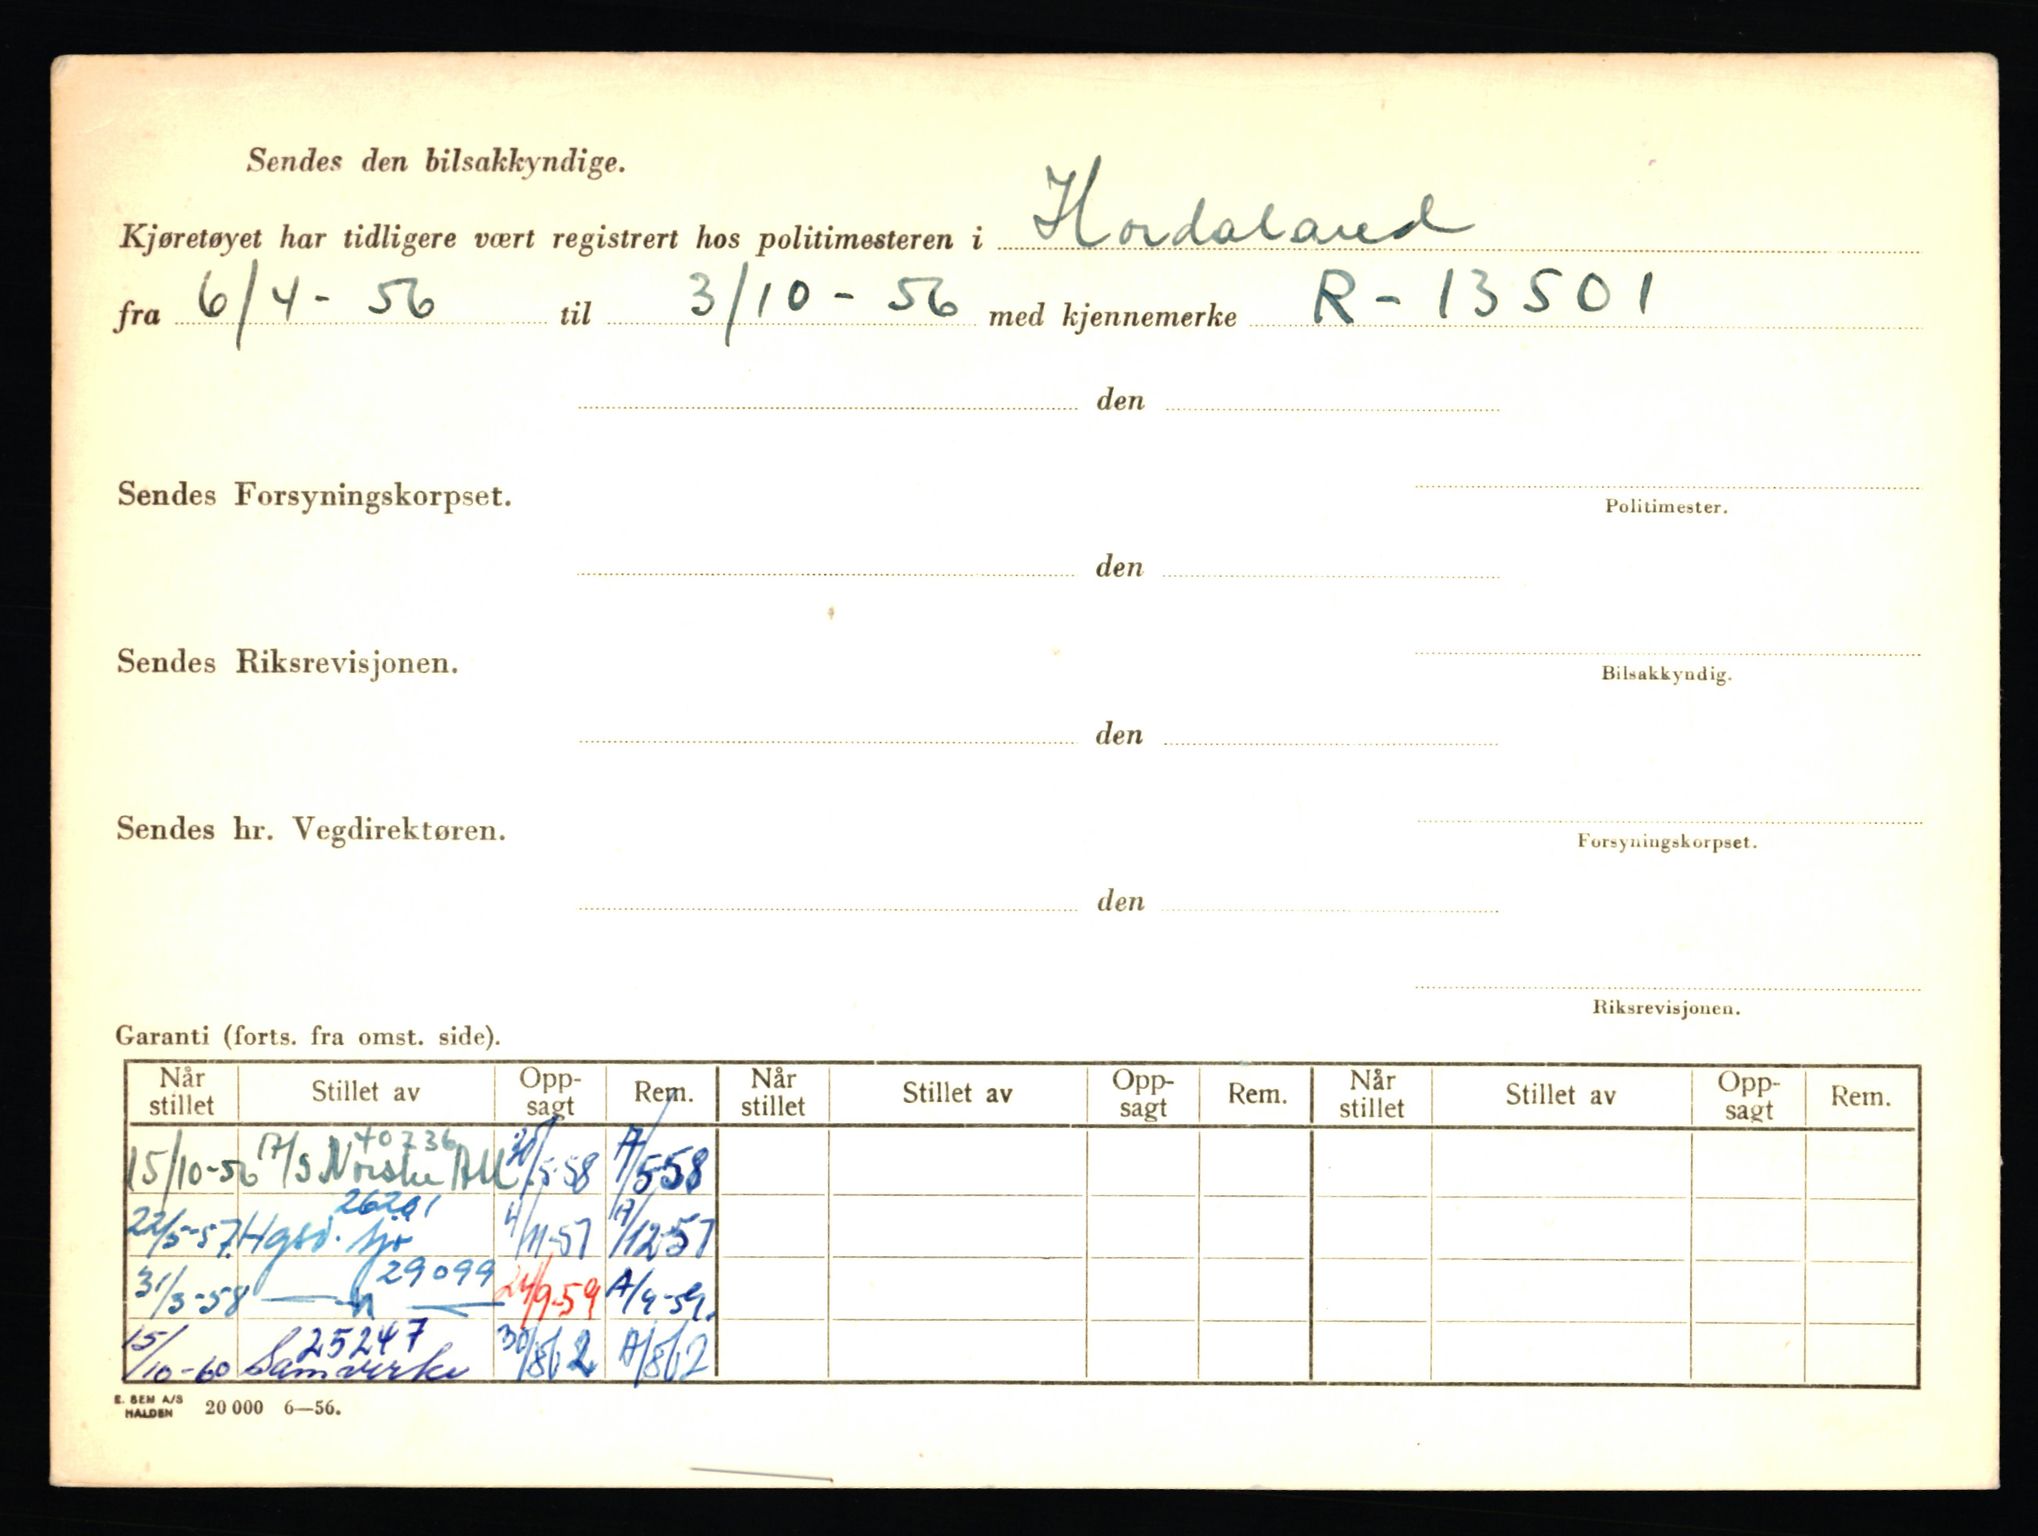 Sendes den bilsakkyndige.
Kjøretøyet har tidligere vært registrert hos politimesteren i Hordaland
fra 6/4-56 til 3/10-56 med kjennemerke R-13501
den
Sendes Forsyningskorpset.
Politimester.
den
Sendes Riksrevisjonen.
Bilsakkyndig.
den
Sendes hr. Vegdirektøren.
Forsyningskorpset.
den
Riksrevisjonen.
Garanti (forts. fra omst. side).
Når stillet Stillet av Opp-sagt Rem. Når stillet Stillet av Opp-sagt Rem. Når stillet Stillet av Opp-sagt Rem.
40736
15/10-56 Norske /5-58 A/5 58
22/5-57 4/11-57 17/12-57
29099
31/3-58 —"— 24/9-59 A/9-59.
25247
15/10-60 Samvirke 30/8 62 A/8 62
E. SEM A/S HALDEN 20 000 6—56.